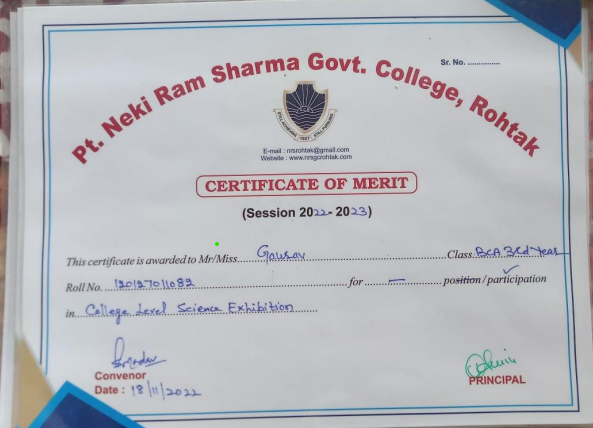 Pt. Neki Ram Sharma Govt. College, Rohtak
Sr. No. ...............
E-mail : nrsrohtak@gmail.com
Website : www.nrsgcrohtak.com
CERTIFICATE OF MERIT
(Session 2022-2023)
This certificate is awarded to Mr/Miss Gaurav Class BCA 3rd Year
Roll No. 120127011082 for — position / participation
in College Level Science Exhibition
Convenor
Date : 18/11/2022
PRINCIPAL